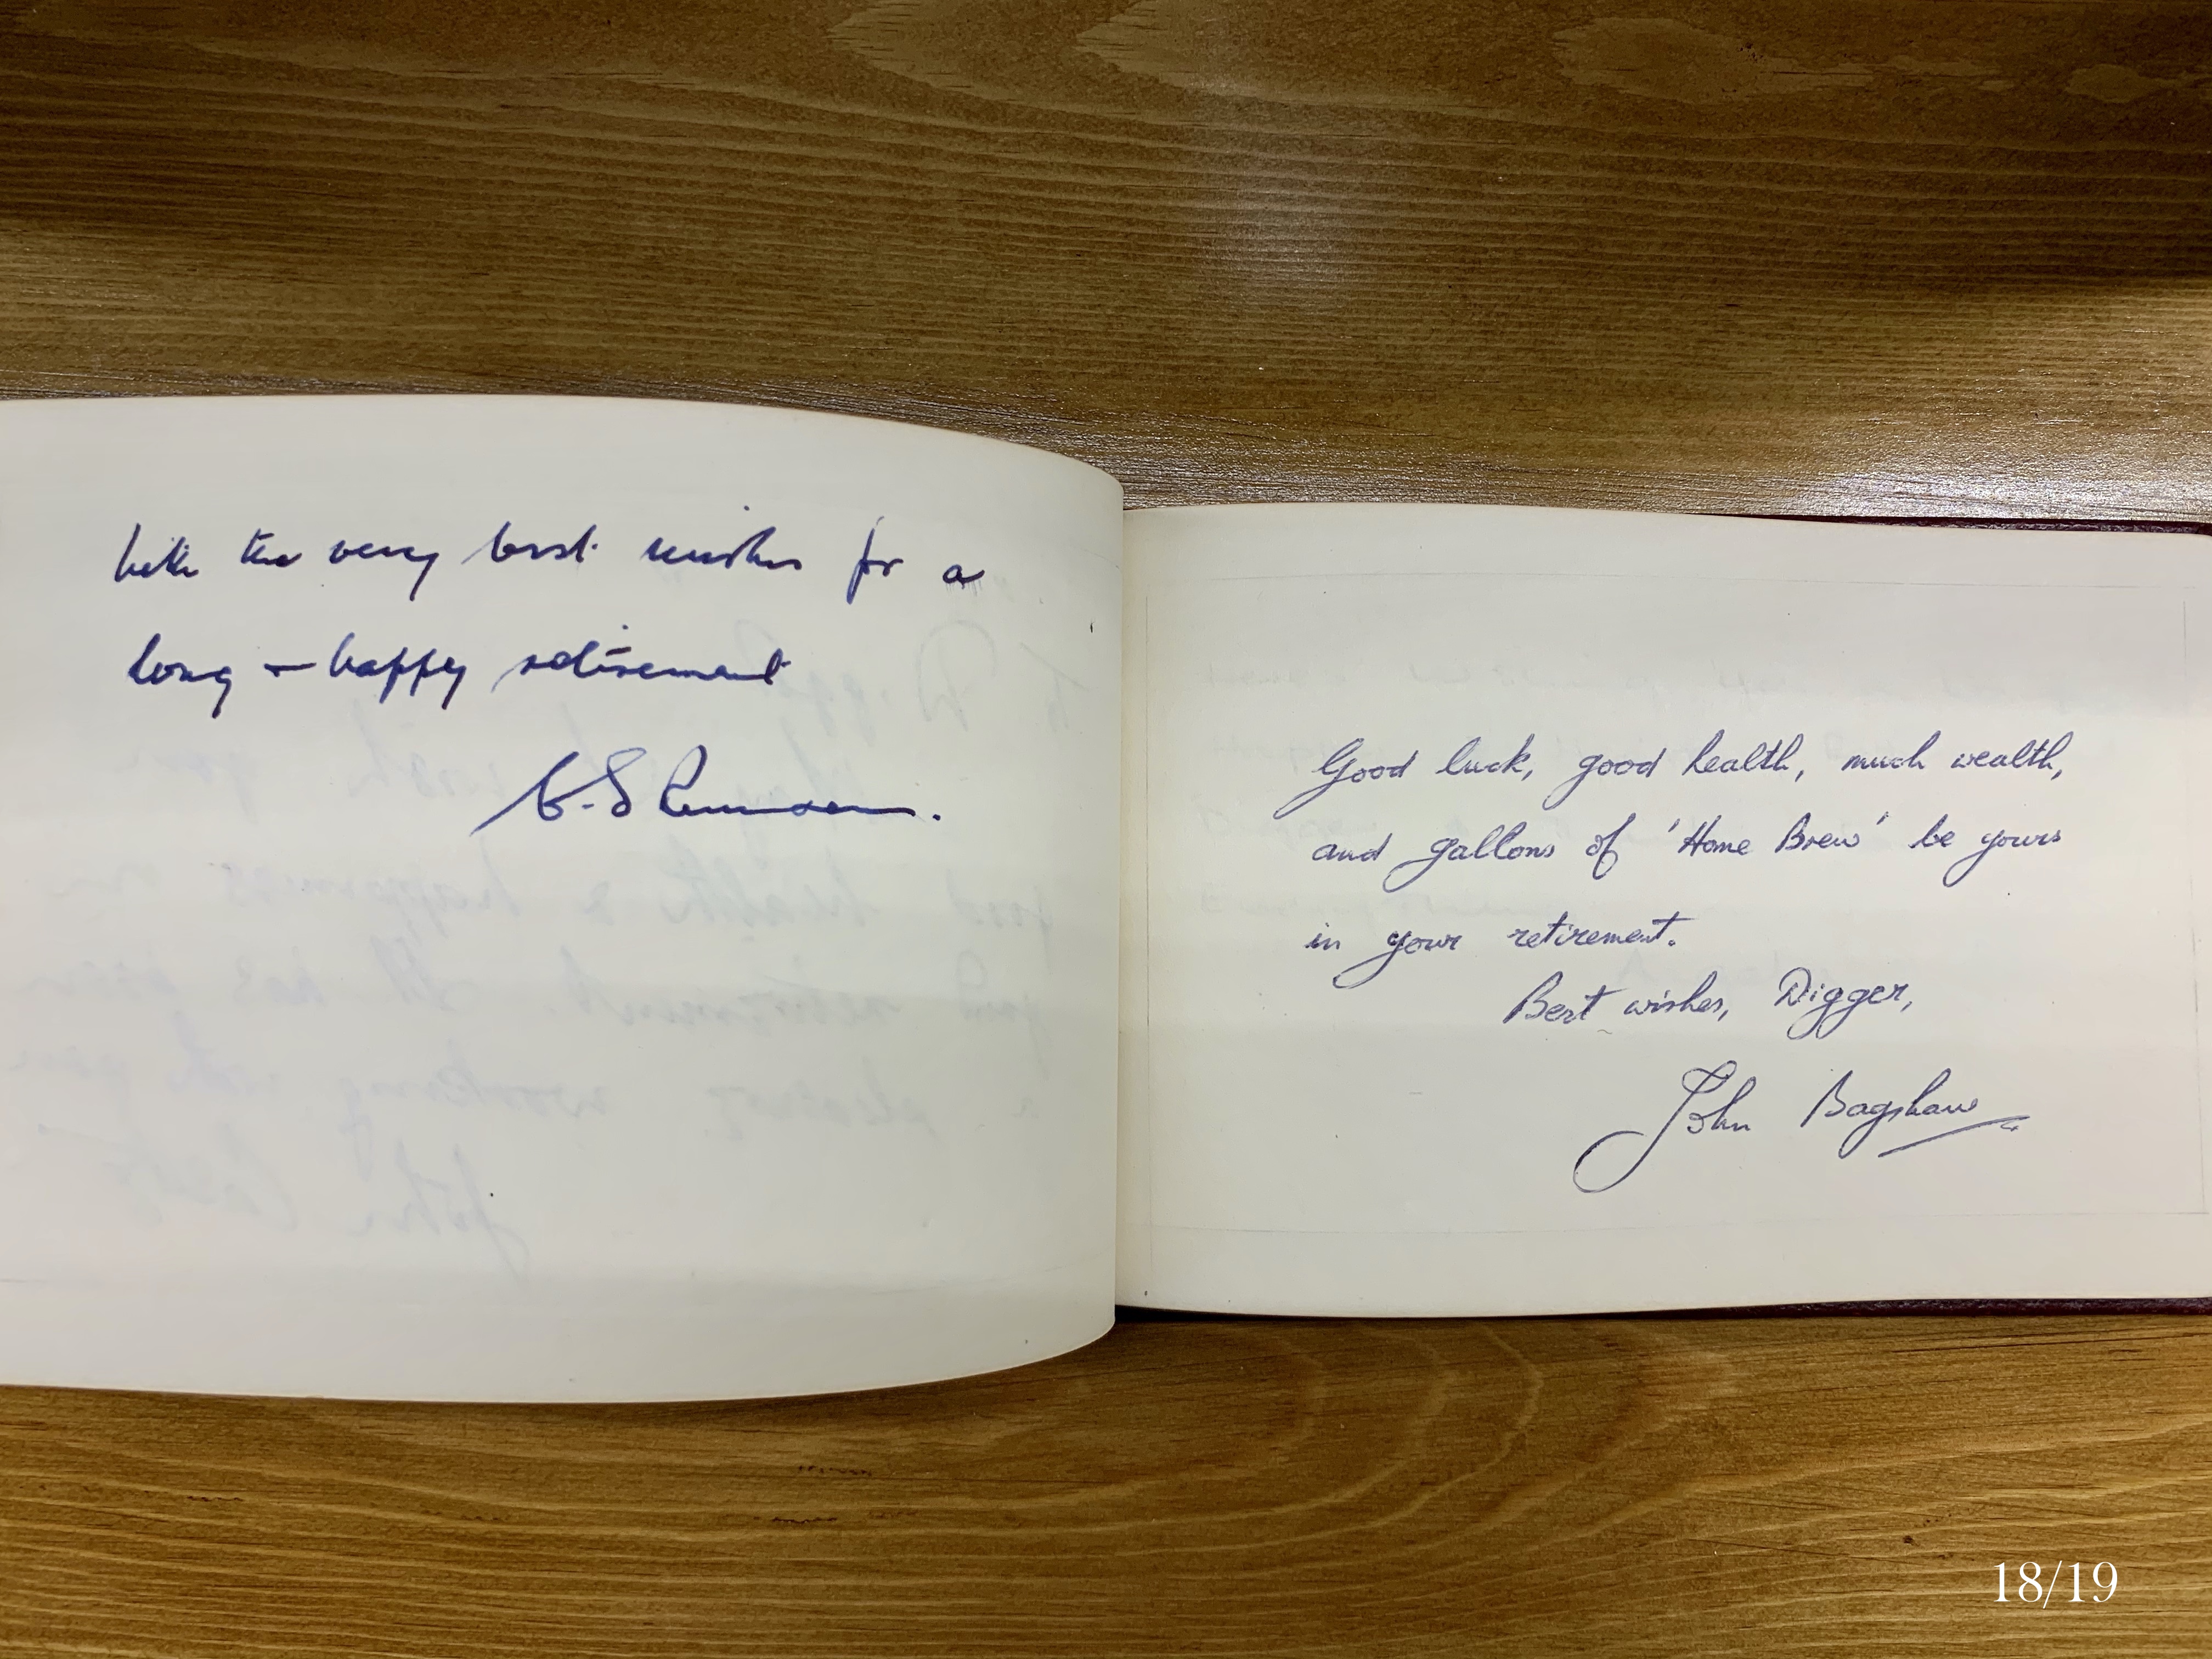 With the very best wishes for a
long & happy retirement
Good luck, good health, much wealth,
and gallons of 'Home Brew' be yours
in your retirement.
Best wishes, Digger,
John Bagshaw
18/19